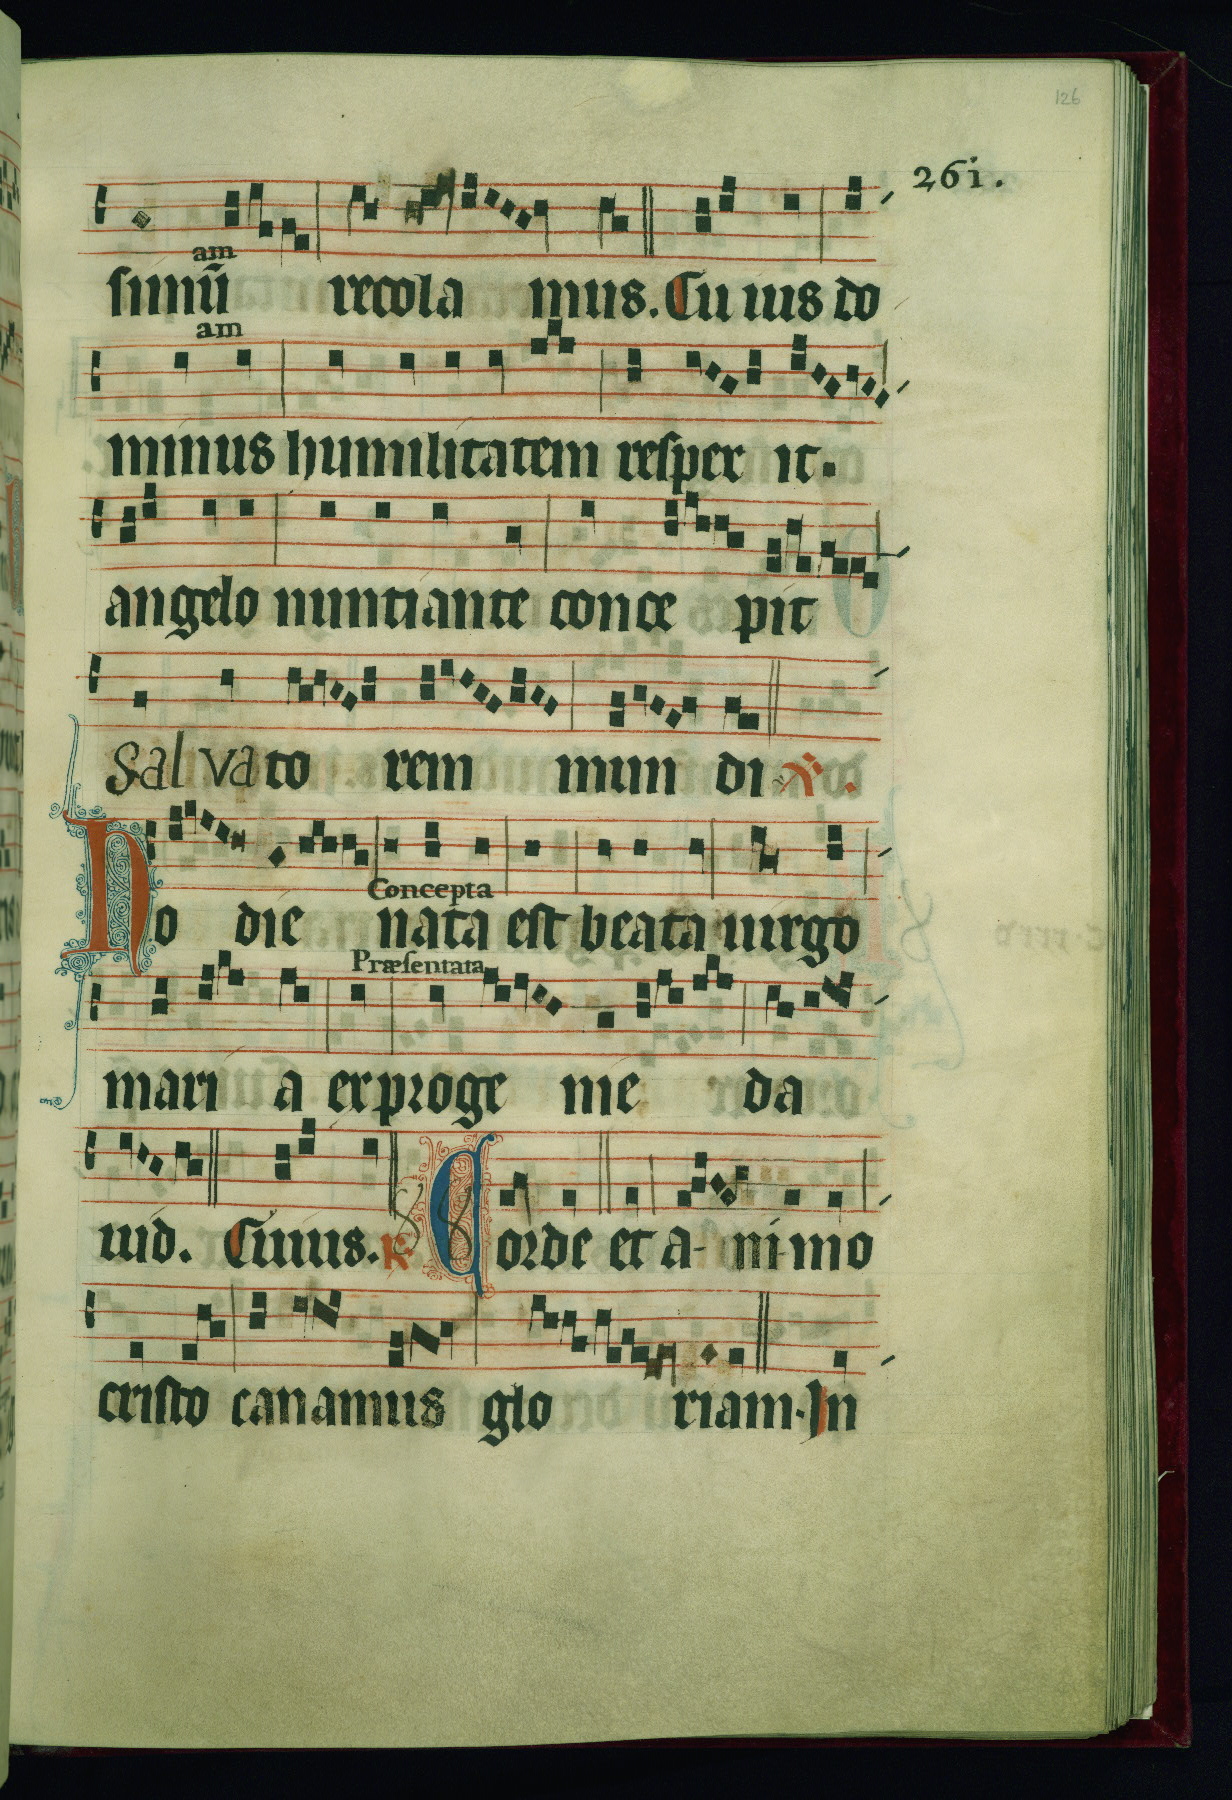 126
261.
am
simū recola mus. Cu ius do
am
minus humilitatem resper it.
angelo nuntiante conce pit
Salvato rem mun di ℣.
Concepta
Ho die nata est beata uirgo
Præsentata
mari a ex proge nie da
uid. Cuius. ℟ Corde et a- ni-mo
cristo canamus glo riam. In